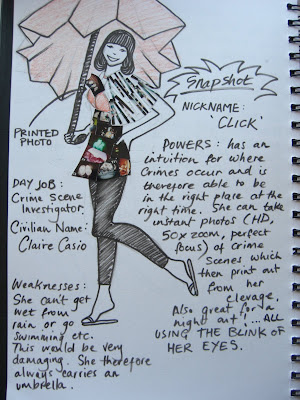 Snapshot
NICKNAME:
'CLICK'
PRINTED
PHOTO
POWERS: has an
intuition for where
Crimes occur and is
therefore able to be
in the right place at the
right time. She can take
instant photos (HD,
50x zoom, perfect
focus) of crime
scenes which
then print out
from her
clevage.
Also great for a
night out!...ALL
USING THE BLINK OF
HER EYES.
DAY JOB:
Crime Scene
Investigator.
Civilian Name:
Claire Casio
Weaknesses:
She can't get
wet from
rain or go
swimming etc.
This would be very
damaging. She therefore
always carries an
umbrella.